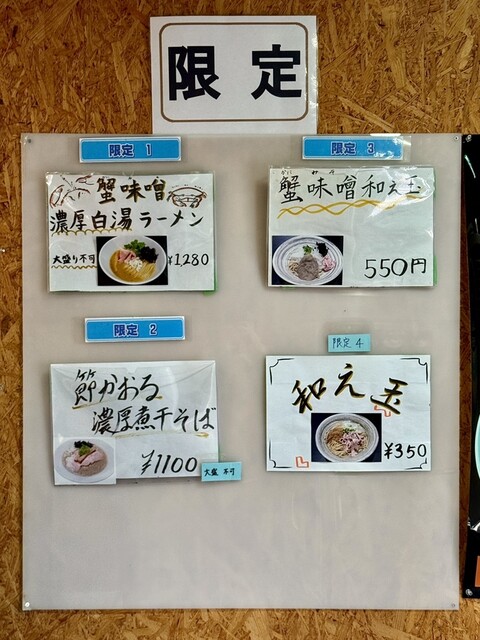 限定
限定 1
蟹味噌
濃厚白湯ラーメン
大盛り不可
¥1,280
限定 2
節かおる
濃厚煮干そば
¥1100
大盛 不可
限定 3
かに わ
蟹味噌和え玉
550円
限定 4
和え玉
¥350